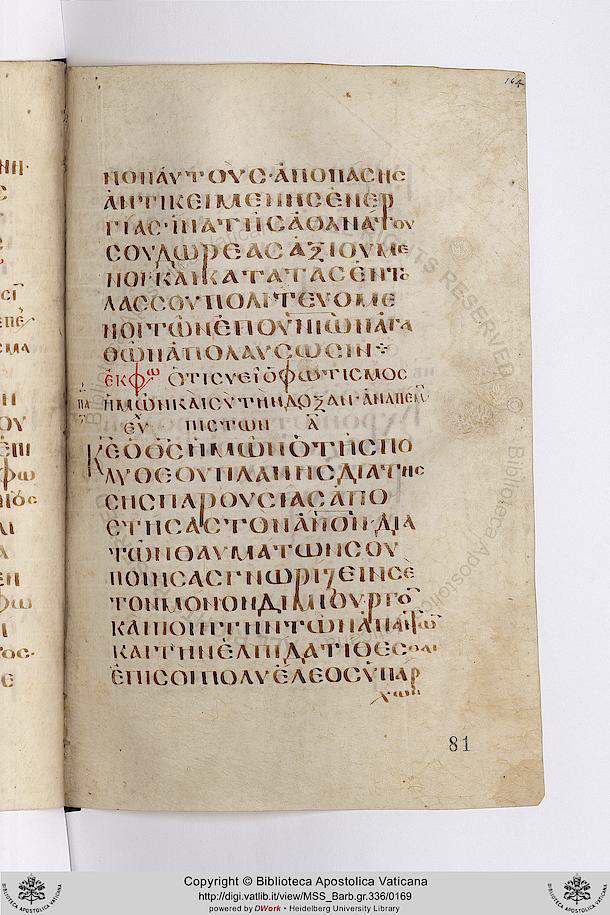 164
ΠΟΝΑΥΤΟΥΣ·ΑΠΟΠΑΣΗΣ
ΑΝΤΙΚΕΙΜΕΝΗΣΕΝΕΡ
ΓΙΑΣ·ΙΝΑΤΗΣΑΘΑΝΑΤΟΥ
ΣΟΥΔΩΡΕΑΣΑΞΙΟΥΜΕ
ΝΟΙ·ΚΑΙΚΑΤΑΤΑΣΕΝΤΟ
ΛΑΣΣΟΥΠΟΛΙΤΕΥΟΜΕ
ΝΟΙΤΩΝΕΠΟΥΝΙΩΝΑΓΑ
ΘΩΝΑΠΟΛΑΥΣΩΣΙΝ
ΕΚΦΩ ΟΤΙΣΥΕΙΟΦΩΤΙΣΜΟΣ
ΗΜΩΝΚΑΙΣΥΤΗΝΔΟΞΑΝ·ΑΝΑΠΕΜ
ΕΥ ΠΙΣΤΩΝ Α
ΚΕΟΘΣΗΜΩΝΟΤΗΣΠΟ
ΛΥΘΕΟΥΠΛΑΝΗΣΔΙΑΤΗΣ
ΣΗΣΠΑΡΟΥΣΙΑΣΑΠΟ
ΣΤΗΣΑΣΤΟΝΑΝΟΝ·ΔΙΑ
ΤΩΝΘΑΥΜΑΤΩΝΣΟΥ
ΠΟΙΗΣΑΣΓΝΩΡΙΖΕΙΝΣΕ
ΤΟΝΜΟΝΟΝΔΙΜΙΟΥΡΓΟ
ΚΑΙΠΟΙΗΤΗΝΤΩΝΑΠΑΝΤΩ
ΚΑΙΤΗΝΕΛΠΙΔΑΤΙΘΕΣΘΑΙ
ΕΠΙΣΟΙΠΟΛΥΕΛΕΟΣΥΠΑΡ
ΧΩΝ
81
Copyright © Biblioteca Apostolica Vaticana
http://digi.vatlib.it/view/MSS_Barb.gr.336/0169
powered by DWork - Heidelberg University Library